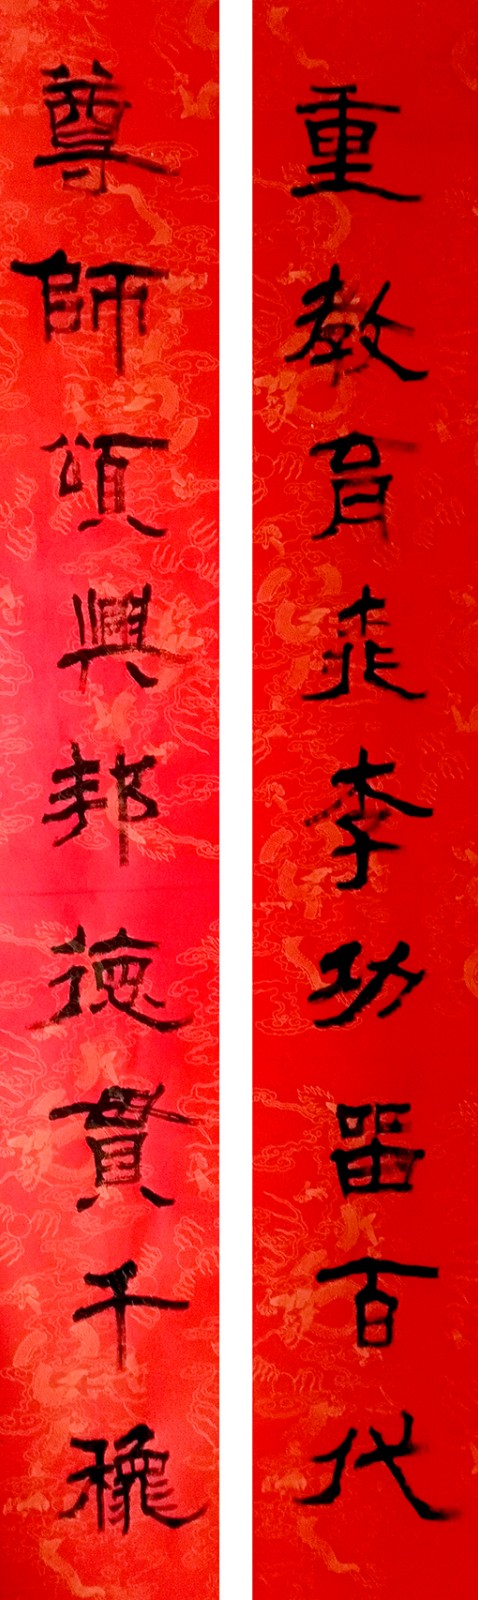 重教育桃李功留百代
尊師頌興邦德貫千穐